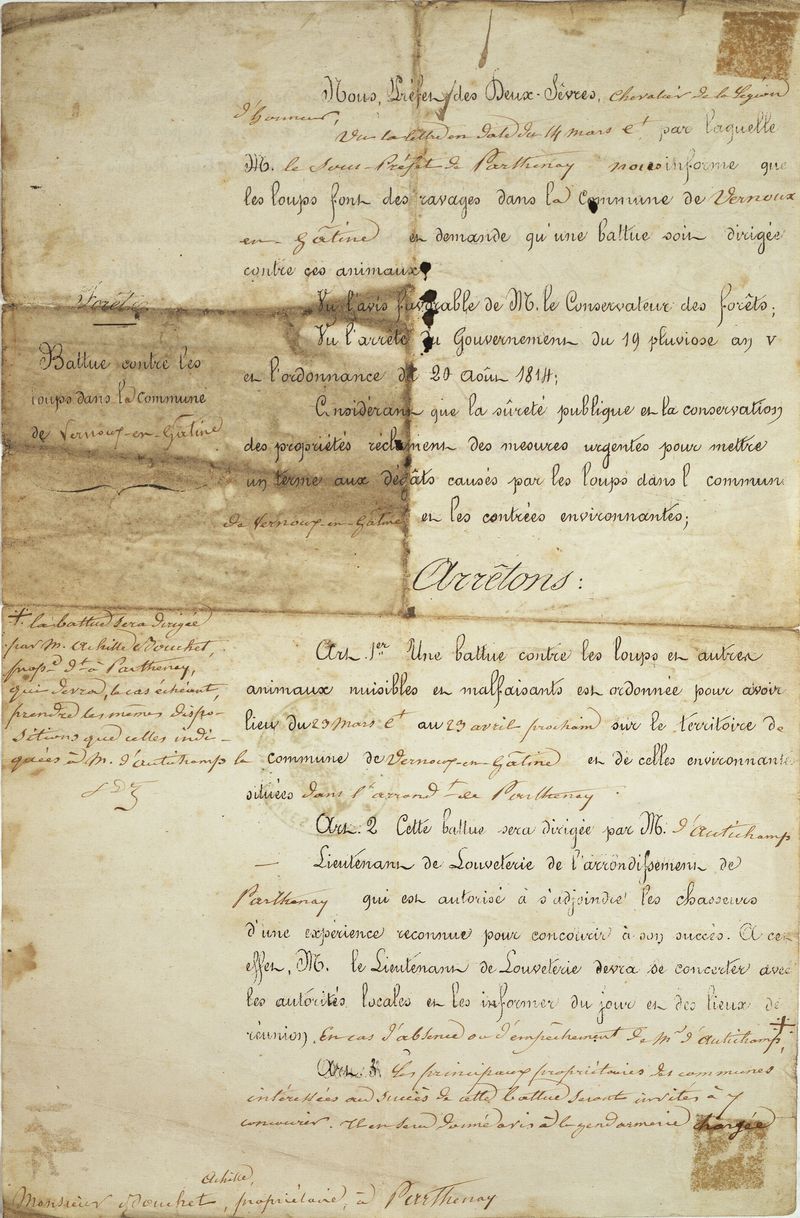 Nous, Préfet des Deux-Sèvres, Chevalier de la Légion
d'honneur,
Vu la lettre en date du 14 mars ct par laquelle
M. le Sous-Préfet de Parthenay nous informe que
les loups font des ravages dans la Commune de Vernoux
en-Gâtine et demande qu'une battue soit dirigée
contre ces animaux;
Vu l'avis favorable de M. le Conservateur des forêts;
Vu l'arrêté du Gouvernement du 19 pluviose an V
et l'ordonnance du 20 Août 1814;
Considérant que la sûreté publique et la conservation
des propriétés réclament des mesures urgentes pour mettre
un terme aux dégâts causés par les loups dans l commun
de Vernoux-en-Gâtine et les contrées environnantes;
Forêts
Battue contre les
loups dans la Commune
de Vernoux-en-Gâtine
Arrêtons:
Art. 1er Une battue contre les loups et autres
animaux nuisibles et malfaisants est ordonnée pour avoir
lieu du 23 mars ct au 23 avril prochain sur le territoire de
la commune de Vernoux-en-Gâtine et de celles environnantes
situées dans l'arrondt de Parthenay.
Art. 2 Cette battue sera dirigée par M. d'Autichamp
— Lieutenant de Louveterie de l'arrondissement de
Parthenay qui est autorisé à s'adjoindre les chasseurs
d'une expérience reconnue pour concourir à son succès. A cet
effet, M. le Lieutenant de Louveterie devra se concerter avec
les autorités locales et les informer du jour et des lieux de
réunion. En cas d'absence ou d'empêchement de Mr d'Autichamp, ‡
Art. 3 Les principaux propriétaires des communes
intéressées au succès de cette battue seront invités à y
concourir. Il en sera donné avis à la gendarmerie chargée
‡ la battue sera dirigée
par M. Achille Bouchet,
propre dt à Parthenay,
qui devra, le cas échéant,
prendre les mêmes dispo-
sitions que celles indi-
quées à M. d'Autichamp
Achille,
Monsieur Bouchet, propriétaire, à Parthenay